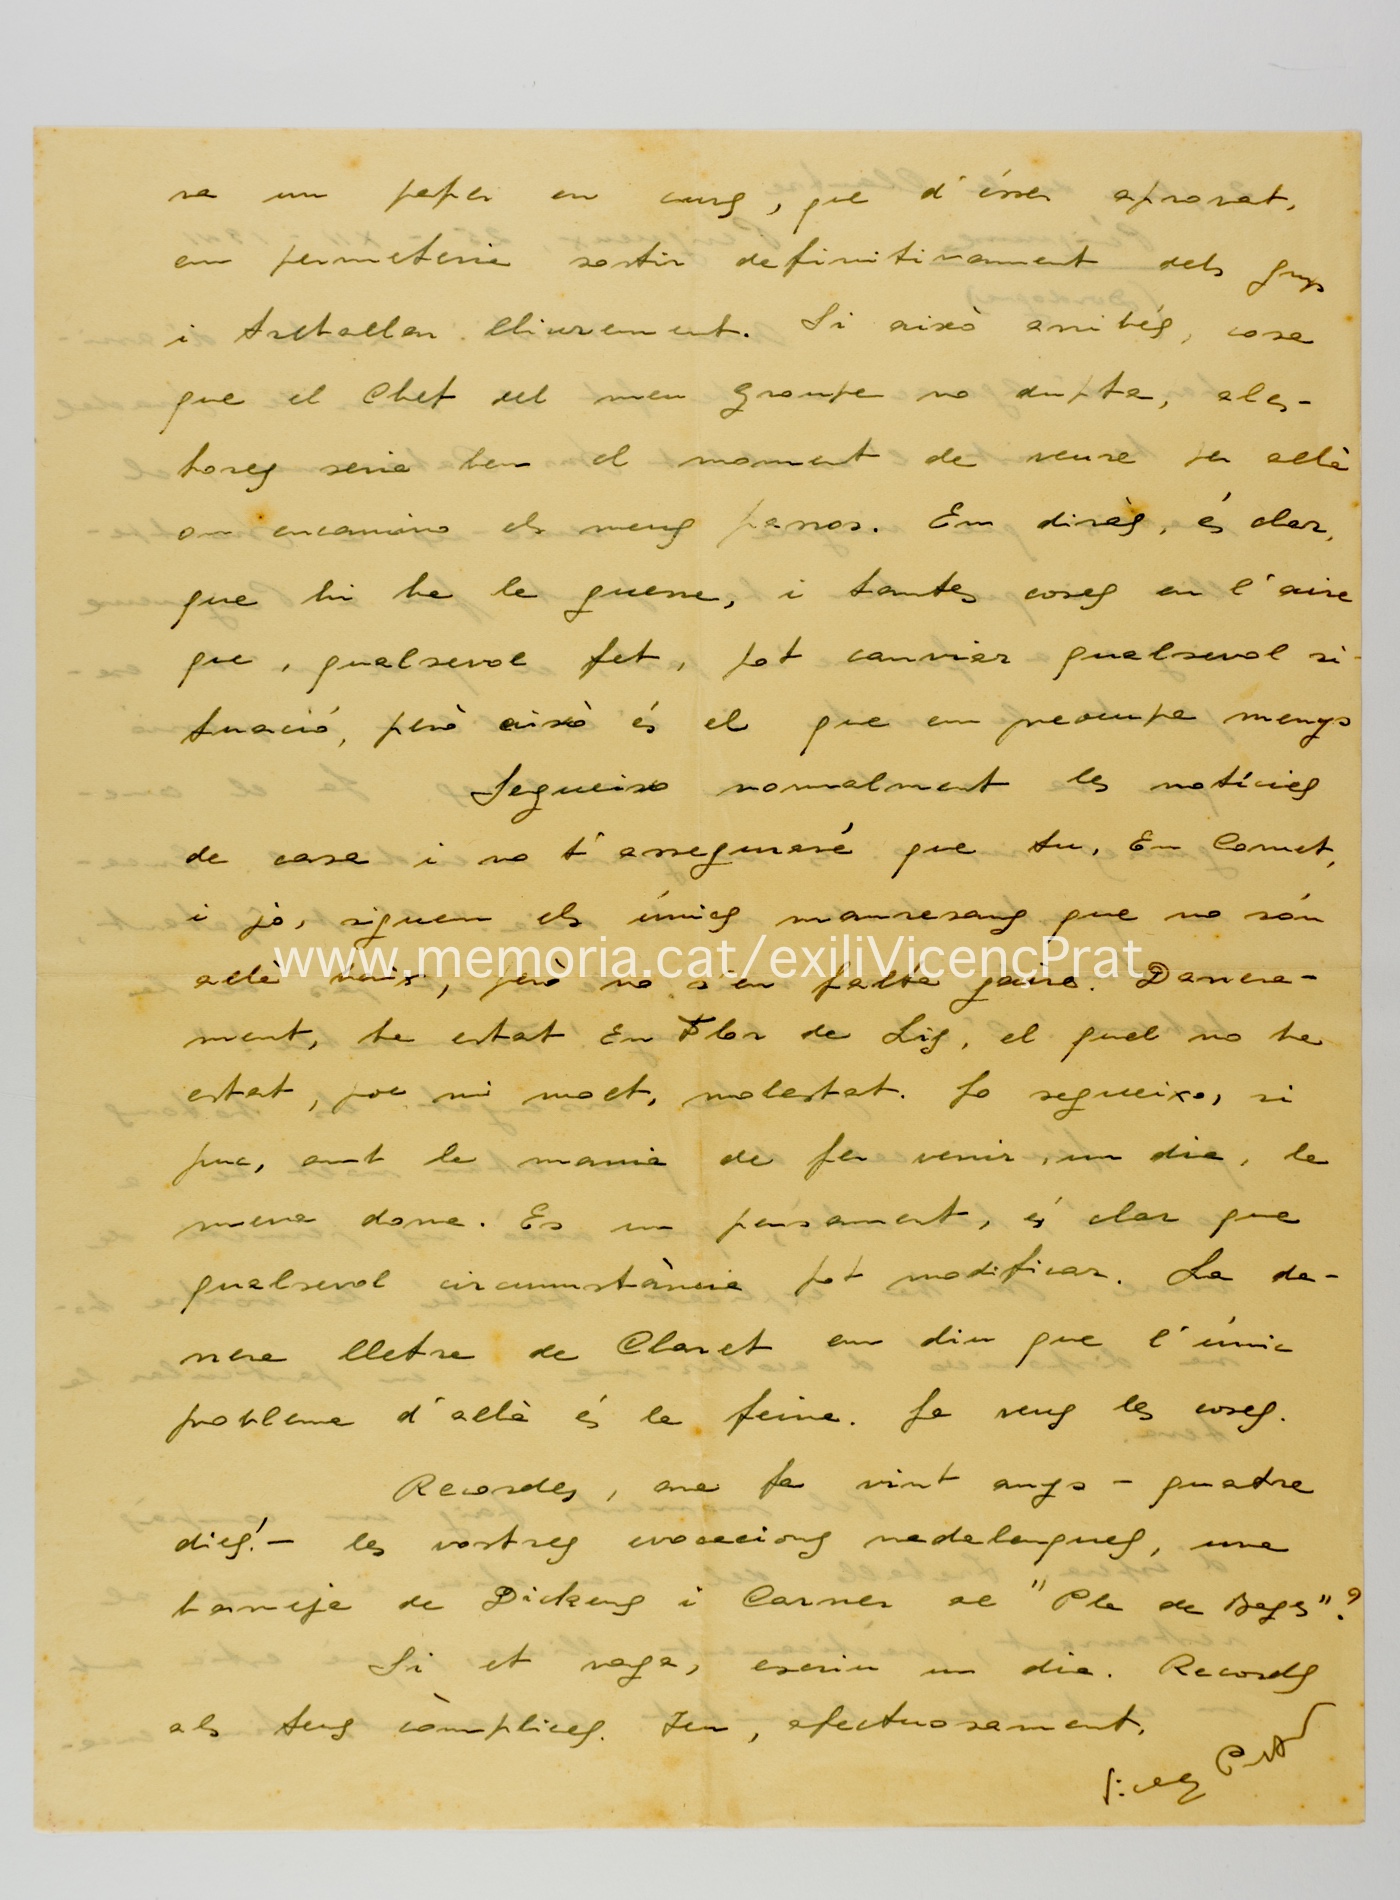 ra un paper en curs, que d'ésser aprovat,
em permeteria sortir definitivament dels grups
i treballar lliurement. Si això arribés, cosa
que el Chef del meu Groupe no dupta, ales-
hores seria ben el moment de veure per allà
on encamino els meus passos. Em diràs, és clar,
que hi ha la guerra, i tantes coses en l'aire
que, qualsevol fet, pot canviar qualsevol si-
tuació, però això és el que em preocupa menys
Segueixo normalment les notícies
de casa i no t'asseguraré que tu, En Comet,
i jo, siguem els únics manresans que no són
allà baix, però no s'en falta gaire. Darrera-
ment, ha estat En Flor de Lis, el qual no ha
estat, poc ni molt, molestat. Jo segueixo, si
puc, amb la mania de fer venir, un dia, la
meva dona. Es un pensament, és clar que
qualsevol circumstància pot modificar. La da-
rrera lletra de Claret em diu que l'únic
problema d'allà és la feina. Ja veus les coses.
Recordes, ara fa vint anys - quatre
dies! - les vostres evocacions nadalenques, una
barreja de Dickens i Carner al "Pla de Bages"?
Si et vaga, escriu un dia. Records
als teus còmplices. Teu, afectuosament,
Prat
www.memoria.cat/exiliVicencPrat